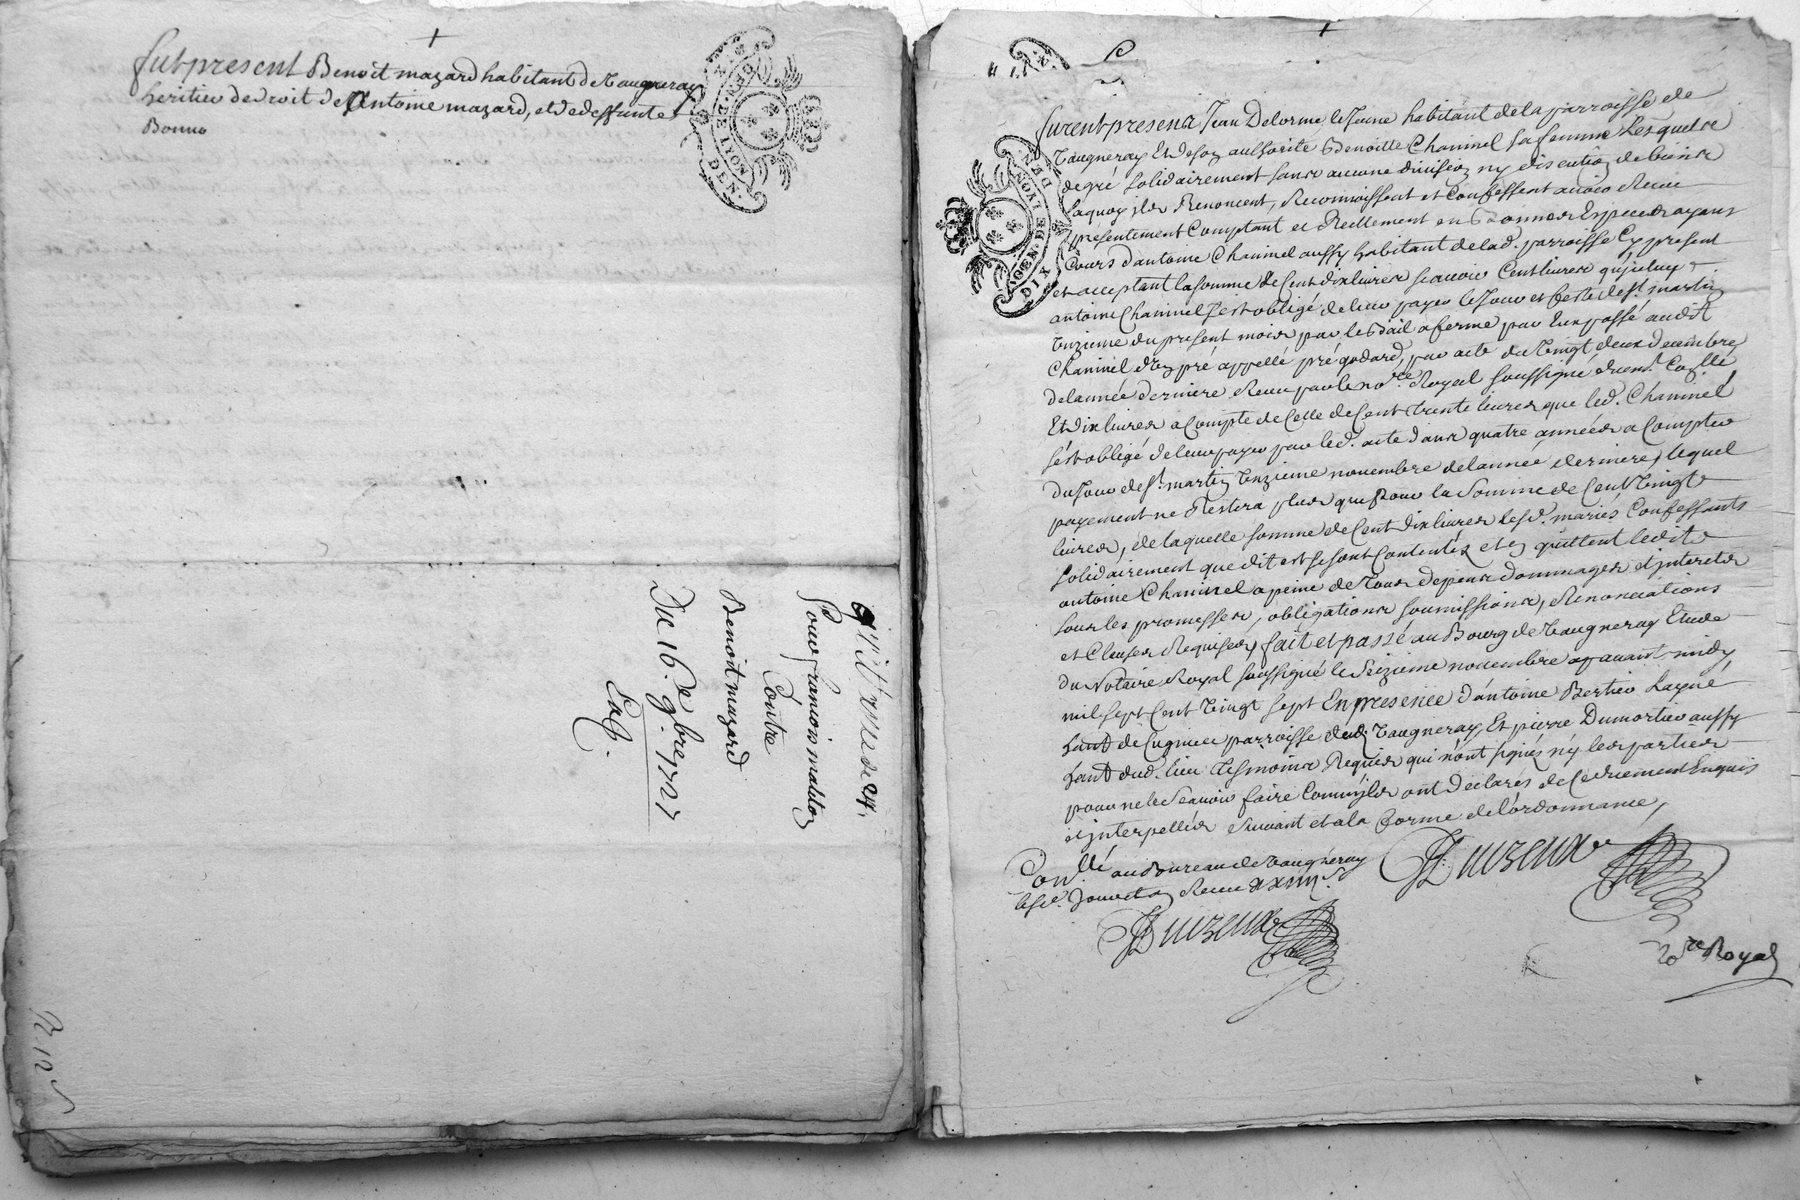 fut present Benoit mazard habitant de Vaugneray
heritier de droit de Antoine mazard, et de deffunte
Bonne
GEN. DE LYON
DEN.
de 24
Pour francois
Contre
Benoit mazard
Du 16e 9bre 1727
Exp.
R 12 s
GEN. DE LYON
DIX DEN
furent presens Jean Delorme le Jeune habitant de la parroisse de
Vaugneray Et de son authorité Benoitte Chaninel sa femme Lesquels
de gré solidairement sans aucune division ny discution de biens
a quoy ils Renoncent, Reconnoissent et Confessent avoir Receu
présentement Comptant et Reellement en Bonnes Especes ayans
Cours d'antoine Chaninel aussy habitant de lad. parroisse Cy present
et acceptant la somme de Cent dix livres scavoir Cent livres qu'iceluy
antoine Chaninel s'est obligé de leur payer le Jour et feste de st. martin
Unzieme du present mois par le Bail a ferme par Eux passé audit
Chaninel d'un pré appellé pré godard, par acte du Vingt deux Decembre
de lannée derniere Receu par le no.re Royal soussigné duem.t Con.llé
Et dix livres a Compte de Celle de Cent trente livres que led. Chaninel
s'est obligé de leur payer par led. acte dans quatre années a Compter
du Jour de st. martin Unzieme novembre de lannée derniere, lequel
payement ne Restera plus que pour la Somme de Cent Vingt
livres, de laquelle somme de Cent dix livres lesd. mariés Confessants
solidairement que dit est se sont Contentés et en quittent ledit
antoine Chaninel a peine de tous depens dommages et interets
sous les promesses, obligations soumissions, Renonciations
et Clauses Requises, fait et passé au Bourg de Vaugneray Etude
du Notaire Royal soussigné le Seizieme novembre apavant midy
mil sept Cent Vingt sept En presence d'antoine Bertier
hant de parroisse dud. Vaugneray, Et pierre Dumortier aussy
hant dud. lieu tesmoins Requis qui n'ont signé ny les parties
pour ne le Scavoir faire Comm'ils ont declarés de Ce duement Enquis
et interpellés suivant et a la forme de l'ordonnance,
Con.llé au Bureau de Vaugneray
led. Jour et an Receu
No.re Royal